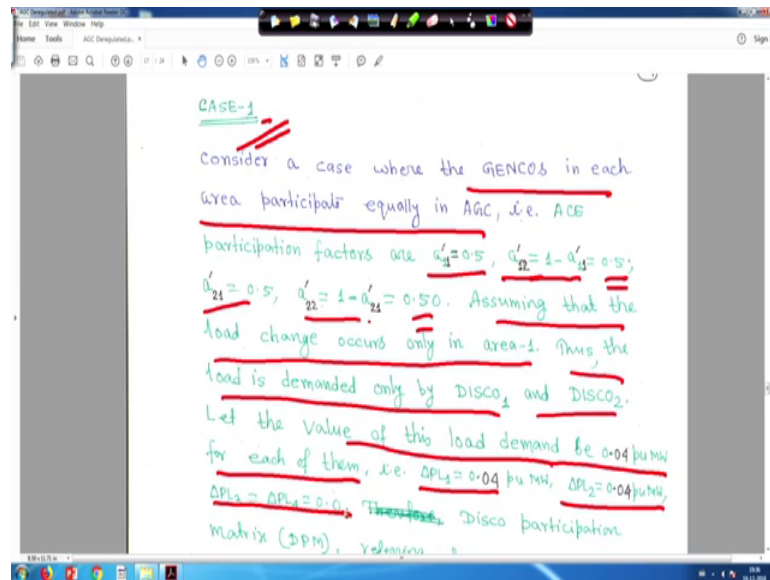 AGC Deregulated.pdf - Adobe Acrobat Reader DC
File Edit View Window Help
Home Tools AGC Deregulated.p... × Sign
17 / 24
CASE-1
Consider a case where the GENCOS in each
area participate equally in AGC, i.e. ACE
participation factors are a'11=0.5, a'12= 1-a'11= 0.5;
a'21 = 0.5, a'22 = 1-a'21 = 0.50. Assuming that the
load change occurs only in area-1. Thus, the
load is demanded only by DISCO1 and DISCO2.
Let the value of this load demand be 0.04 puMW
for each of them, i.e. ΔPL1 = 0.04 pu MW, ΔPL2=0.04 puMW,
ΔPL3 = ΔPL4 = 0.0. Therefore, Disco participation
matrix (DPM), referring
8.50 x 11.71 in